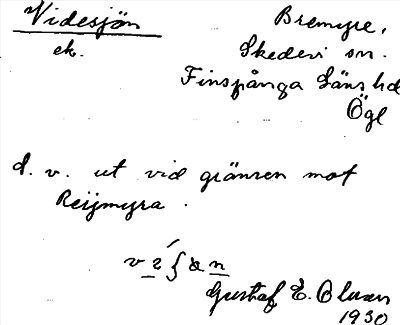 Videsjön
Bremyre,
ek.
Skedevi sn.
Finspånga Läns hd
Ögl
d. v. ut vid gränsen mot
Reijmyra.
Gustaf E. Olsson
1930